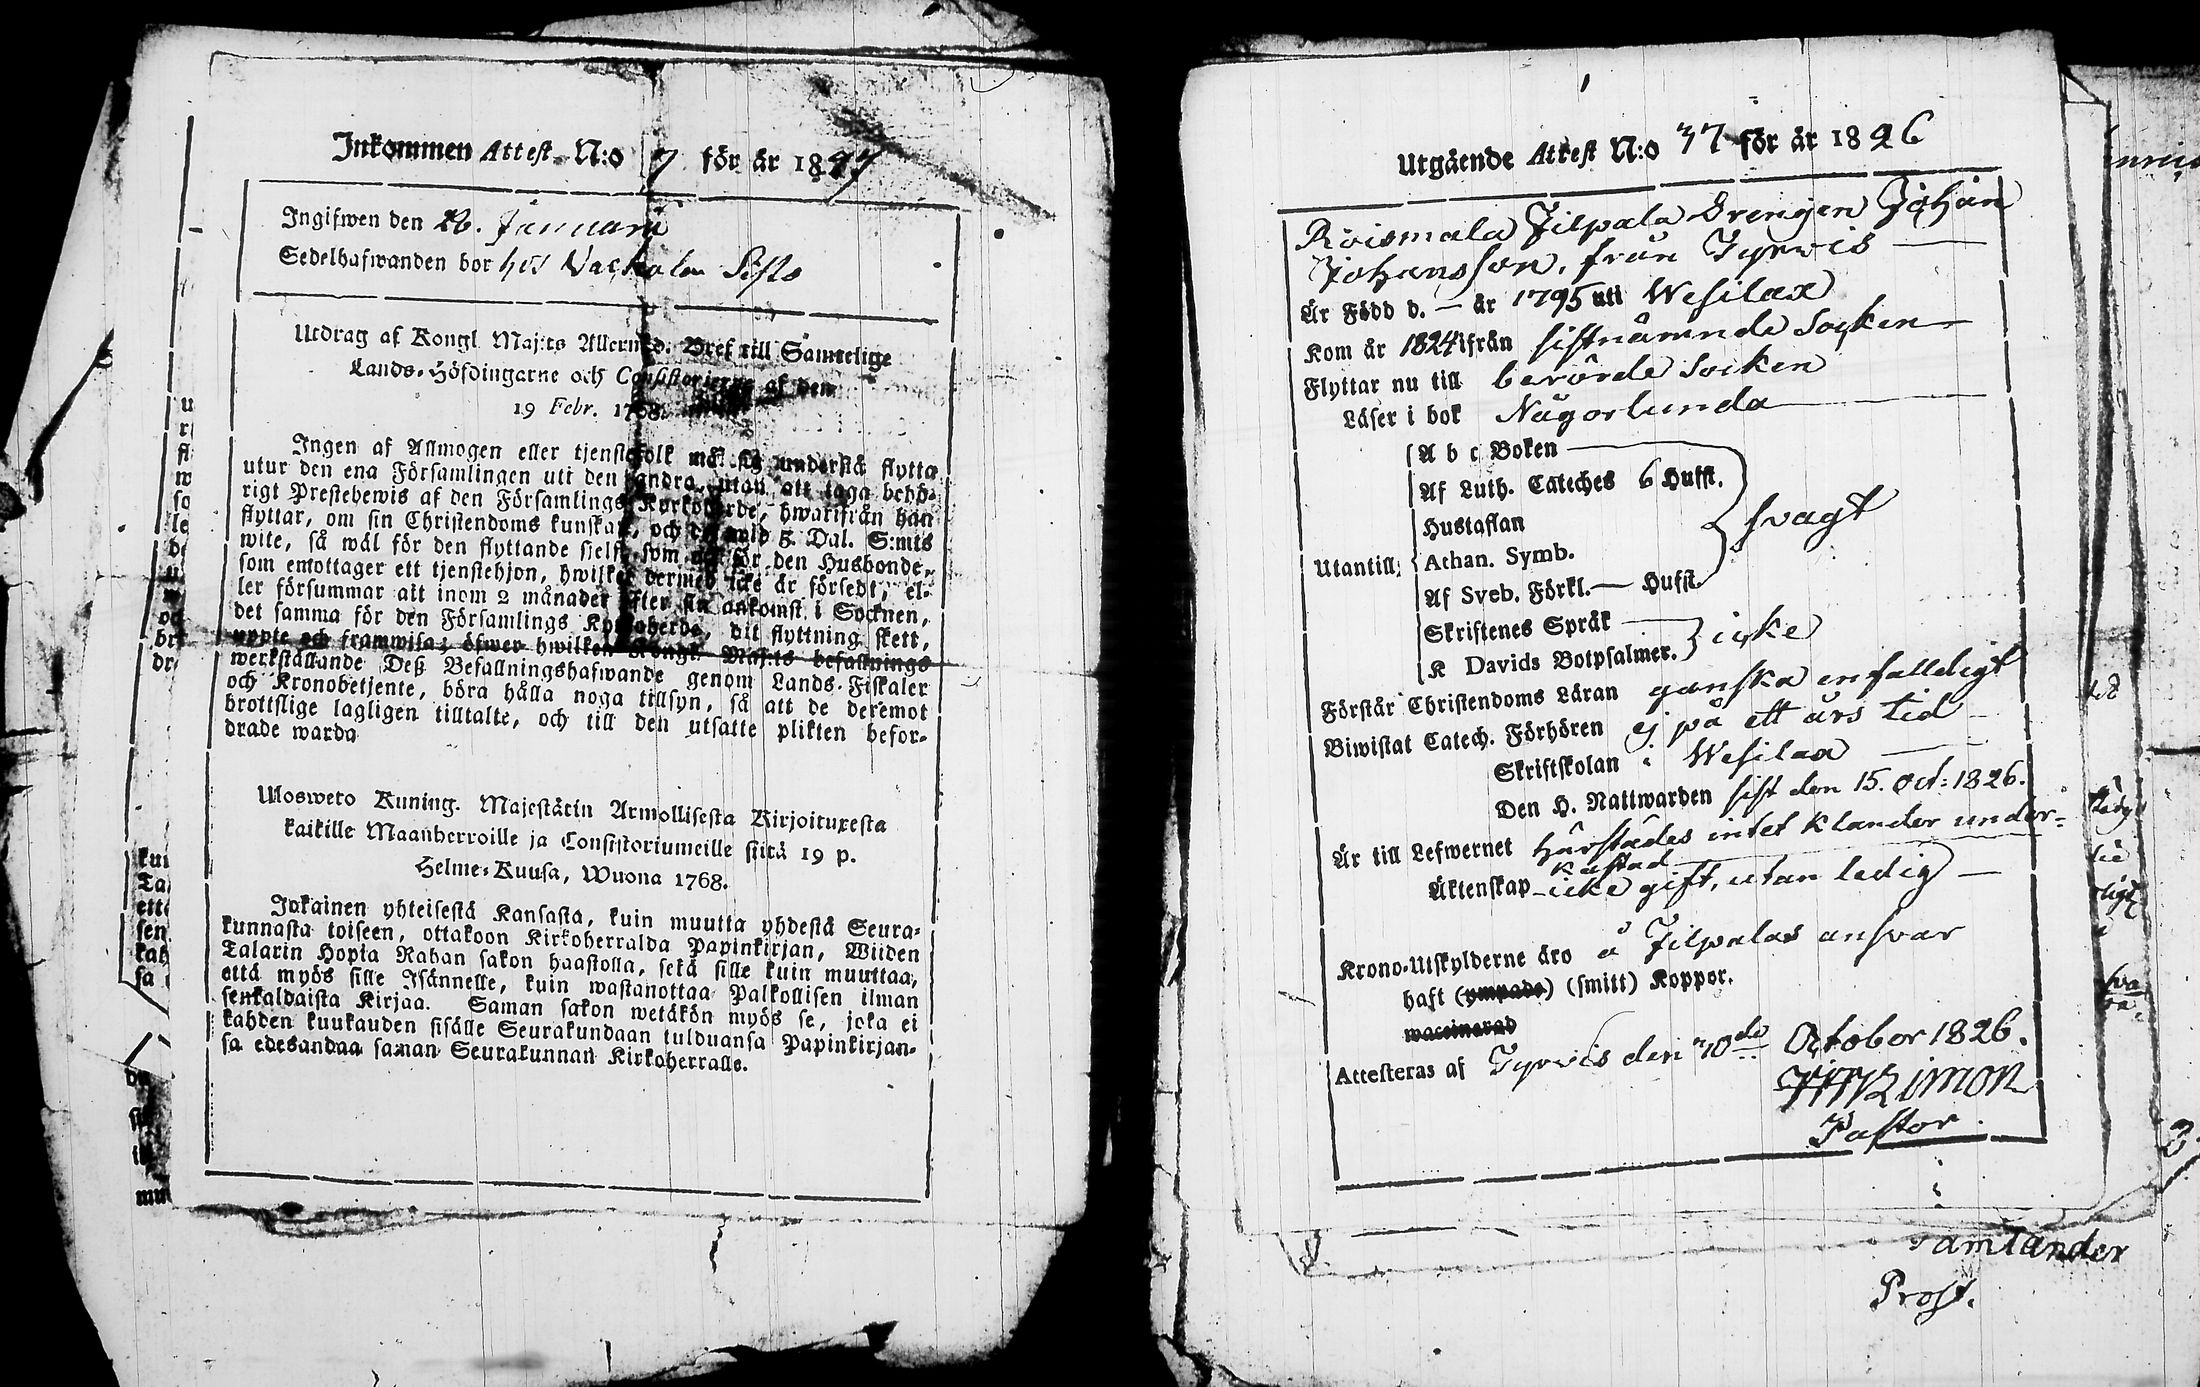 Inkommen Attest N:o 7 för år 1827
Ingifwen den 26. Januari
Sedelhafwanden bor hos
Utdrag af Kongl. Maj:ts Allernåd. Bref till Samtelige
Lands-Höfdingarne och Consistorierne af den
19 Febr. 1768.
Ingen af Allmogen eller tjenstefolk må sig understå flytta
utur den ena Församlingen uti den andra, utan att taga behö-
rigt Prestebewis af den Församlings Kyrkoherde, hwarifrån han
flyttar, om sin Christendoms kunskap, och det wid 5. Dal. S:mts
wite, så wäl för den flyttande sjelf, som ock för den Husbonde,
som emottager ett tjenstehjon, hwilket dermed icke är försedt, el-
ler försummar att inom 2 månader efter sin ankomst i Socknen,
det samma för den Församlings Kyrkoherde, dit flyttning skett,
uppte och framwisa; öfwer hwilken Kongl. Maj:ts befallnings
werkställande Deß Befallningshafwande genom Lands-Fiskaler
och Kronobetjente, böra hålla noga tillsyn, så att de deremot
brottslige lagligen tilltalte, och till den utsatte plikten befor-
drade warda
Ulosweto Kuning. Majestätin Armollisesta Kirjoituxesta
kaikille Maanherroille ja Consistoriumeille siitä 19 p.
Helme-Kuusa, Wuona 1768.
Jokainen yhteisestä Kansasta, kuin muutta yhdestä Seura-
kunnasta toiseen, ottakoon Kirkoherralda Papinkirjan, Wiiden
Talarin Hopia Rahan sakon haastolla, sekä sille kuin muuttaa,
että myös sille Isännelle, kuin wastanottaa Palkollisen ilman
senkaldaista Kirjaa. Saman sakon wetäkön myös se, joka ei
kahden kuukauden sisälle Seurakundaan tulduansa Papinkirjan-
sa edesandaa saman Seurakunnan Kirkoherralle.
Utgående Attest N:o 37 för år 1826
Roismala Jilpala Drengen Johan
Johansson, från Tyrvis
Är Född d. — år 1795 uti Wesilax
Kom år 1824 ifrån sistnämnde Socken
Flyttar nu till berörde Socken
Läser i bok Någorlunda
A b c Boken
Af Luth. Cateches 6 Hufst.
Hustaflan
svagt
Utantill, Athan. Symb.
Af Sveb. Förkl. — Hufst.
Skriftenes Språk
icke
K Davids Botpsalmer.
Förstår Christendoms Läran ganska enfaldigt
Biwistat Catech. Förhören ej på ett års tid
Skriftskolan i Wesilax
Den H. Nattwarden sist den 15. Oct: 1826.
Är till Lefwernet härstädes intet klander under-
kastad
Äktenskap icke gift, utan ledig
Krono-Utskylderne äro å Jilpalas ansvar
haft (ympade) (smitt) Koppor.
waccinerad
Attesteras af Tyrvis den 30de October 1826.
Pastor
Prost.